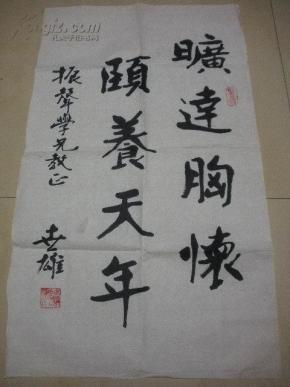 曠達胸懷
頤養天年
振聲學兄教正
世雄